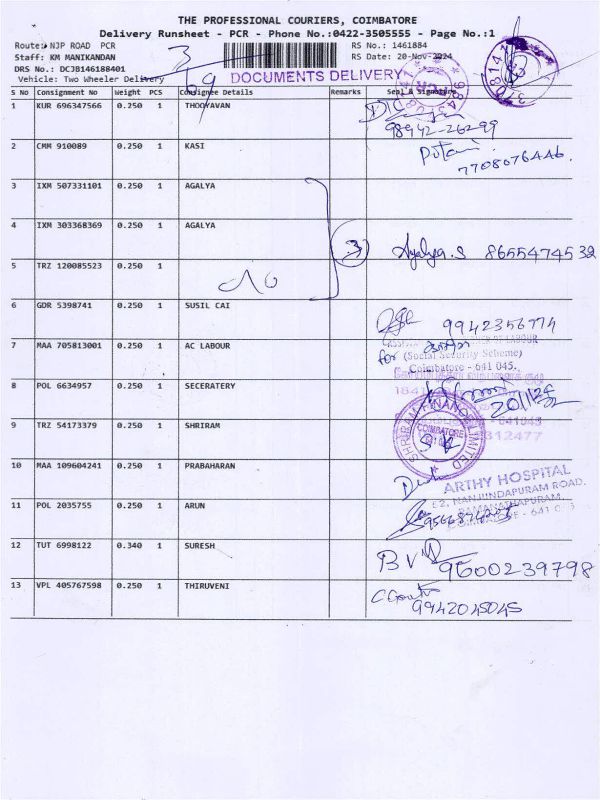 THE PROFESSIONAL COURIERS, COIMBATORE
Delivery Runsheet - PCR - Phone No.:0422-3505555 - Page No.:1
Route: NJP ROAD PCR
RS No.: 1461884
Staff: KM MANIKANDAN
RS Date: 20-Nov-2024
DRS No.: DCJB146188401
Vehicle: Two Wheeler Delivery
DOCUMENTS DELIVERY
S No Consignment No Weight PCS Consignee Details Remarks Seal & Signature
1 KUR 696347566 0.250 1 THOOYAVAN
98942-26299
2 CMM 910089 0.250 1 KASI
7708076446.
3 IXM 507331101 0.250 1 AGALYA
4 IXM 303368369 0.250 1 AGALYA
3 Agalya.S 8655474532
5 TRZ 120085523 0.250 1
6 GDR 5398741 0.250 1 SUSIL CAI
9942356774
7 MAA 705813001 0.250 1 AC LABOUR
for (Social Security Scheme)
Coimbatore - 641 045.
8 POL 6634957 0.250 1 SECERATERY
9 TRZ 54173379 0.250 1 SHRIRAM
SHRIRAM FINANCE LIMITED
COIMBATORE
10 MAA 109604241 0.250 1 PRABAHARAN
ARTHY HOSPITAL
NANJUNDAPURAM ROAD,
RAMANATHAPURAM,
11 POL 2035755 0.250 1 ARUN
12 TUT 6998122 0.340 1 SURESH
9600239798
13 VPL 405767598 0.250 1 THIRUVENI
9942045045